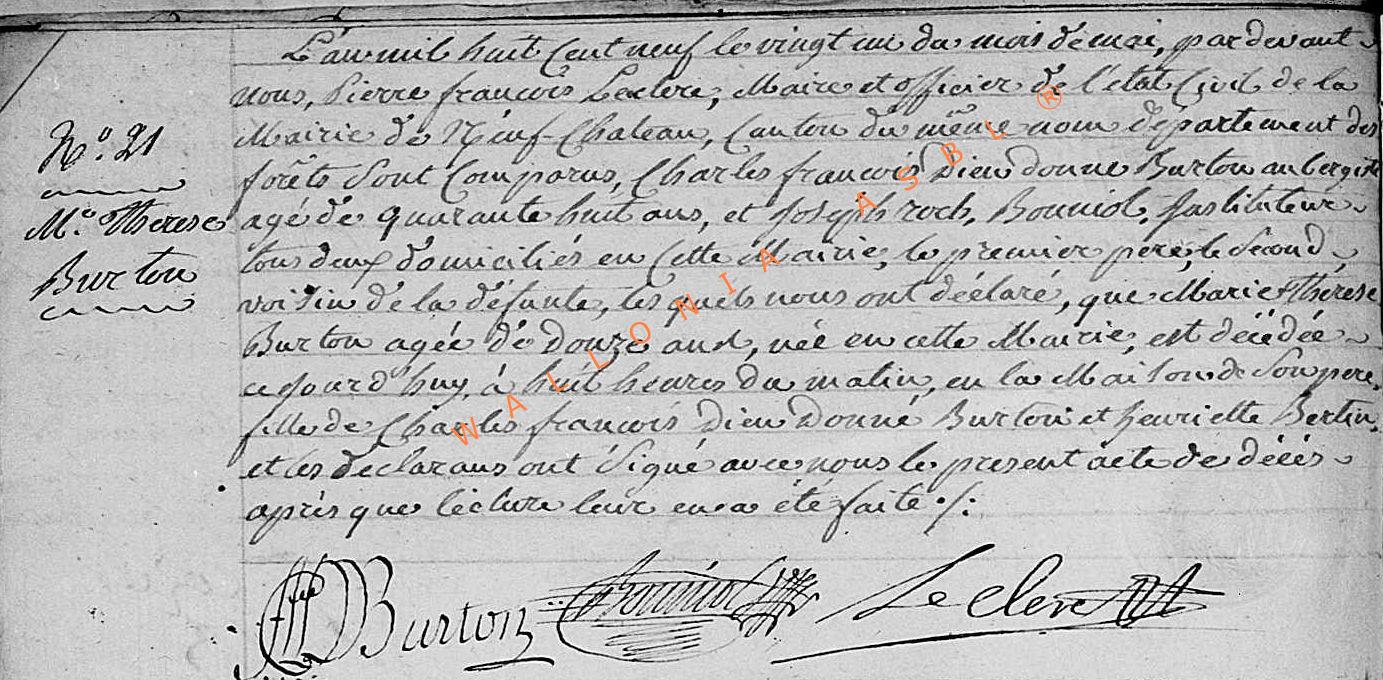 L'an mil huit Cent neuf le vingt un du mois de mai, par devant
nous, Pierre françois Leclerc, Maire et officier de l'état Civil de la
Mairie de Neuf-Chateau, Canton du même nom département des
forêts Sont Comparus, Charles françois Dieu donné Burton aubergiste
agé de quarante huit ans, et Joseph roch, Bouniol, Instituteur
tous deux domiciliés en Cette Mairie, le premier pere, le Second
voisin de la défunte, les quels nous ont déclaré, que Marie Therese
Burton agée de douze ans, née en cette Mairie, est décédée
ce jourd'huy, à huit heures du matin, en la Maison de Son pere,
fille de Charles françois Dieu Donné Burton et henriette Bertin,
et les declarans ont Signé avec nous le present acte de décès
après que lecture leur en a été faite ./:
N.o 21
M.e Therese
Burton
Burton Bouniol Leclerc
WALLONIA ASBL ®